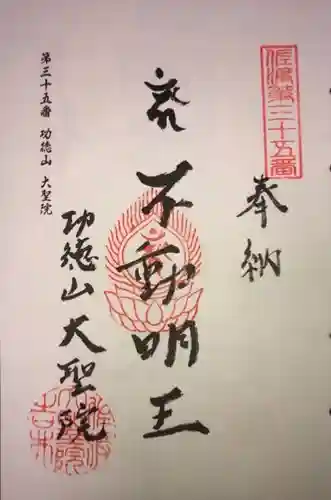 佐渡第三十五番
奉納
不動明王
功徳山大聖院
第三十五番 功徳山 大聖院